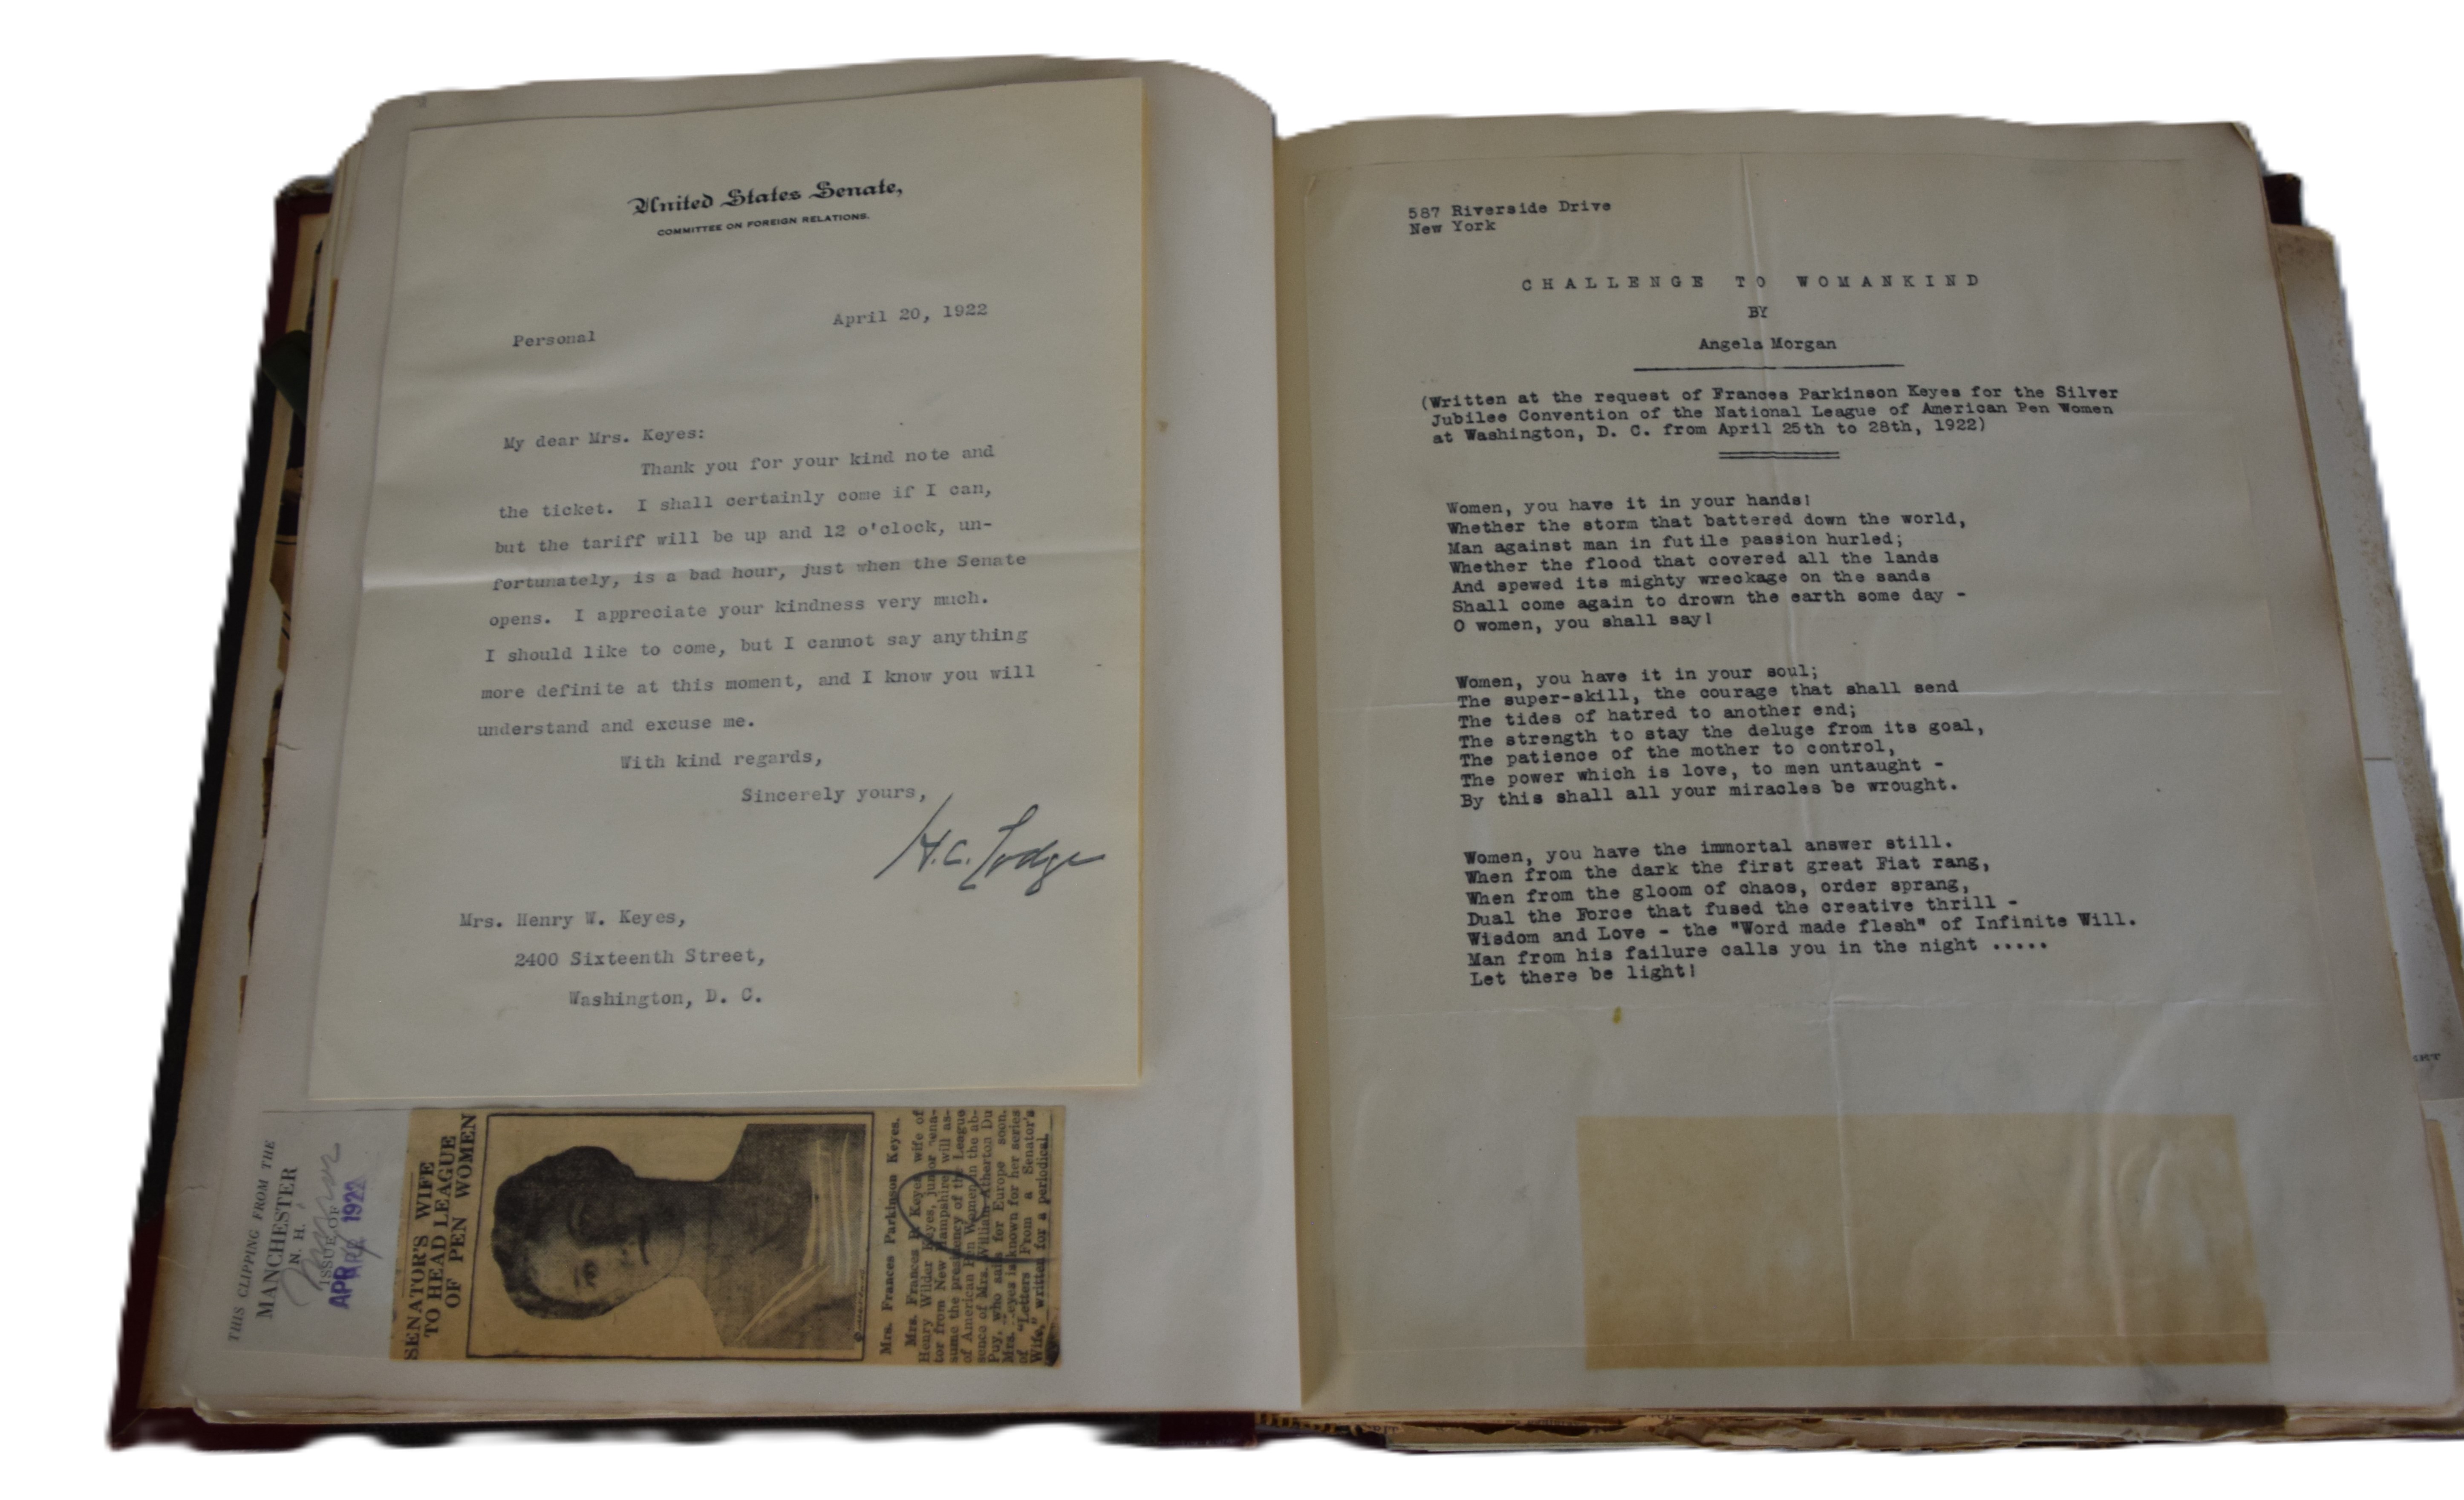 United States Senate,
COMMITTEE ON FOREIGN RELATIONS.
April 20, 1922
Personal
My dear Mrs. Keyes:
Thank you for your kind note and
the ticket. I shall certainly come if I can,
but the tariff will be up and 12 o'clock, un-
fortunately, is a bad hour, just when the Senate
opens. I appreciate your kindness very much.
I should like to come, but I cannot say anything
more definite at this moment, and I know you will
understand and excuse me.
With kind regards,
Sincerely yours,
H.C. Lodge
Mrs. Henry W. Keyes,
2400 Sixteenth Street,
Washington, D. C.
THIS CLIPPING FROM THE
MANCHESTER
N. H.
ISSUE OF
APR 1922
SENATOR'S WIFE
TO HEAD LEAGUE
OF PEN WOMEN
Mrs. Frances Parkinson Keyes.
Mrs. Frances Keyes wife of
Henry Wilder Keyes, junior
tor from New Hampshire will as-
sume the presidency of the League
of American Pen Women in the ab-
sence of Mrs. William Atherton Du
Puy, who sails for Europe soon.
Mrs. Keyes is known for her series
of "Letters From a Senator's
Wife," written for a periodical.
587 Riverside Drive
New York
CHALLENGE TO WOMANKIND
BY
Angela Morgan
(Written at the request of Frances Parkinson Keyes for the Silver
Jubilee Convention of the National League of American Pen Women
at Washington, D. C. from April 25th to 28th, 1922)
Women, you have it in your hands!
Whether the storm that battered down the world,
Man against man in futile passion hurled;
Whether the flood that covered all the lands
And spewed its mighty wreckage on the sands
Shall come again to drown the earth some day -
O women, you shall say!
Women, you have it in your soul;
The super-skill, the courage that shall send
The tides of hatred to another end;
The strength to stay the deluge from its goal,
The patience of the mother to control,
The power which is love, to men untaught -
By this shall all your miracles be wrought.
Women, you have the immortal answer still.
When from the dark the first great Fiat rang,
When from the gloom of chaos, order sprang,
Dual the Force that fused the creative thrill -
Wisdom and Love - the "Word made flesh" of Infinite Will.
Man from his failure calls you in the night .....
Let there be light!